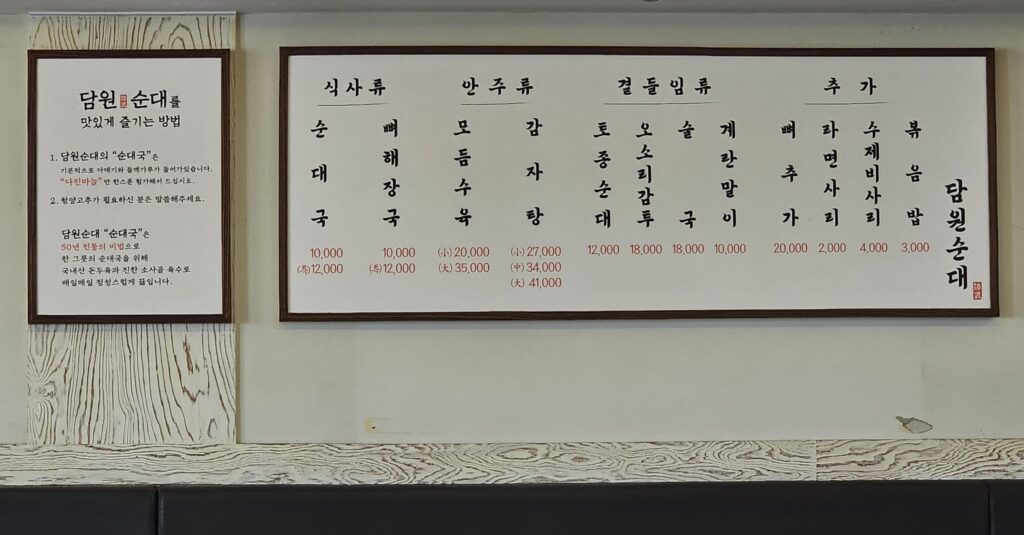 담원순대를
맛있게 즐기는 방법
1. 담원순대의 "순대국"은
기본적으로 다대기와 들깨가루가 들어가있습니다.
"다진마늘"만 한스푼 첨가해서 드십시오.
2. 청양고추가 필요하신 분은 말씀해주세요.
담원순대 "순대국"은
50년 전통의 비법으로
한 그릇의 순대국을 위해
국내산 돈두육과 진한 소사골 육수로
매일매일 정성스럽게 끓입니다.
식사류
순대국
10,000
(특)12,000
뼈해장국
10,000
(특)12,000
안주류
모듬수육
(小)20,000
(大)35,000
감자탕
(小)27,000
(中)34,000
(大)41,000
곁들임류
토종순대
12,000
오소리감투
18,000
술국
18,000
계란말이
10,000
추가
뼈추가
20,000
라면사리
2,000
수제비사리
4,000
볶음밥
3,000
담원순대